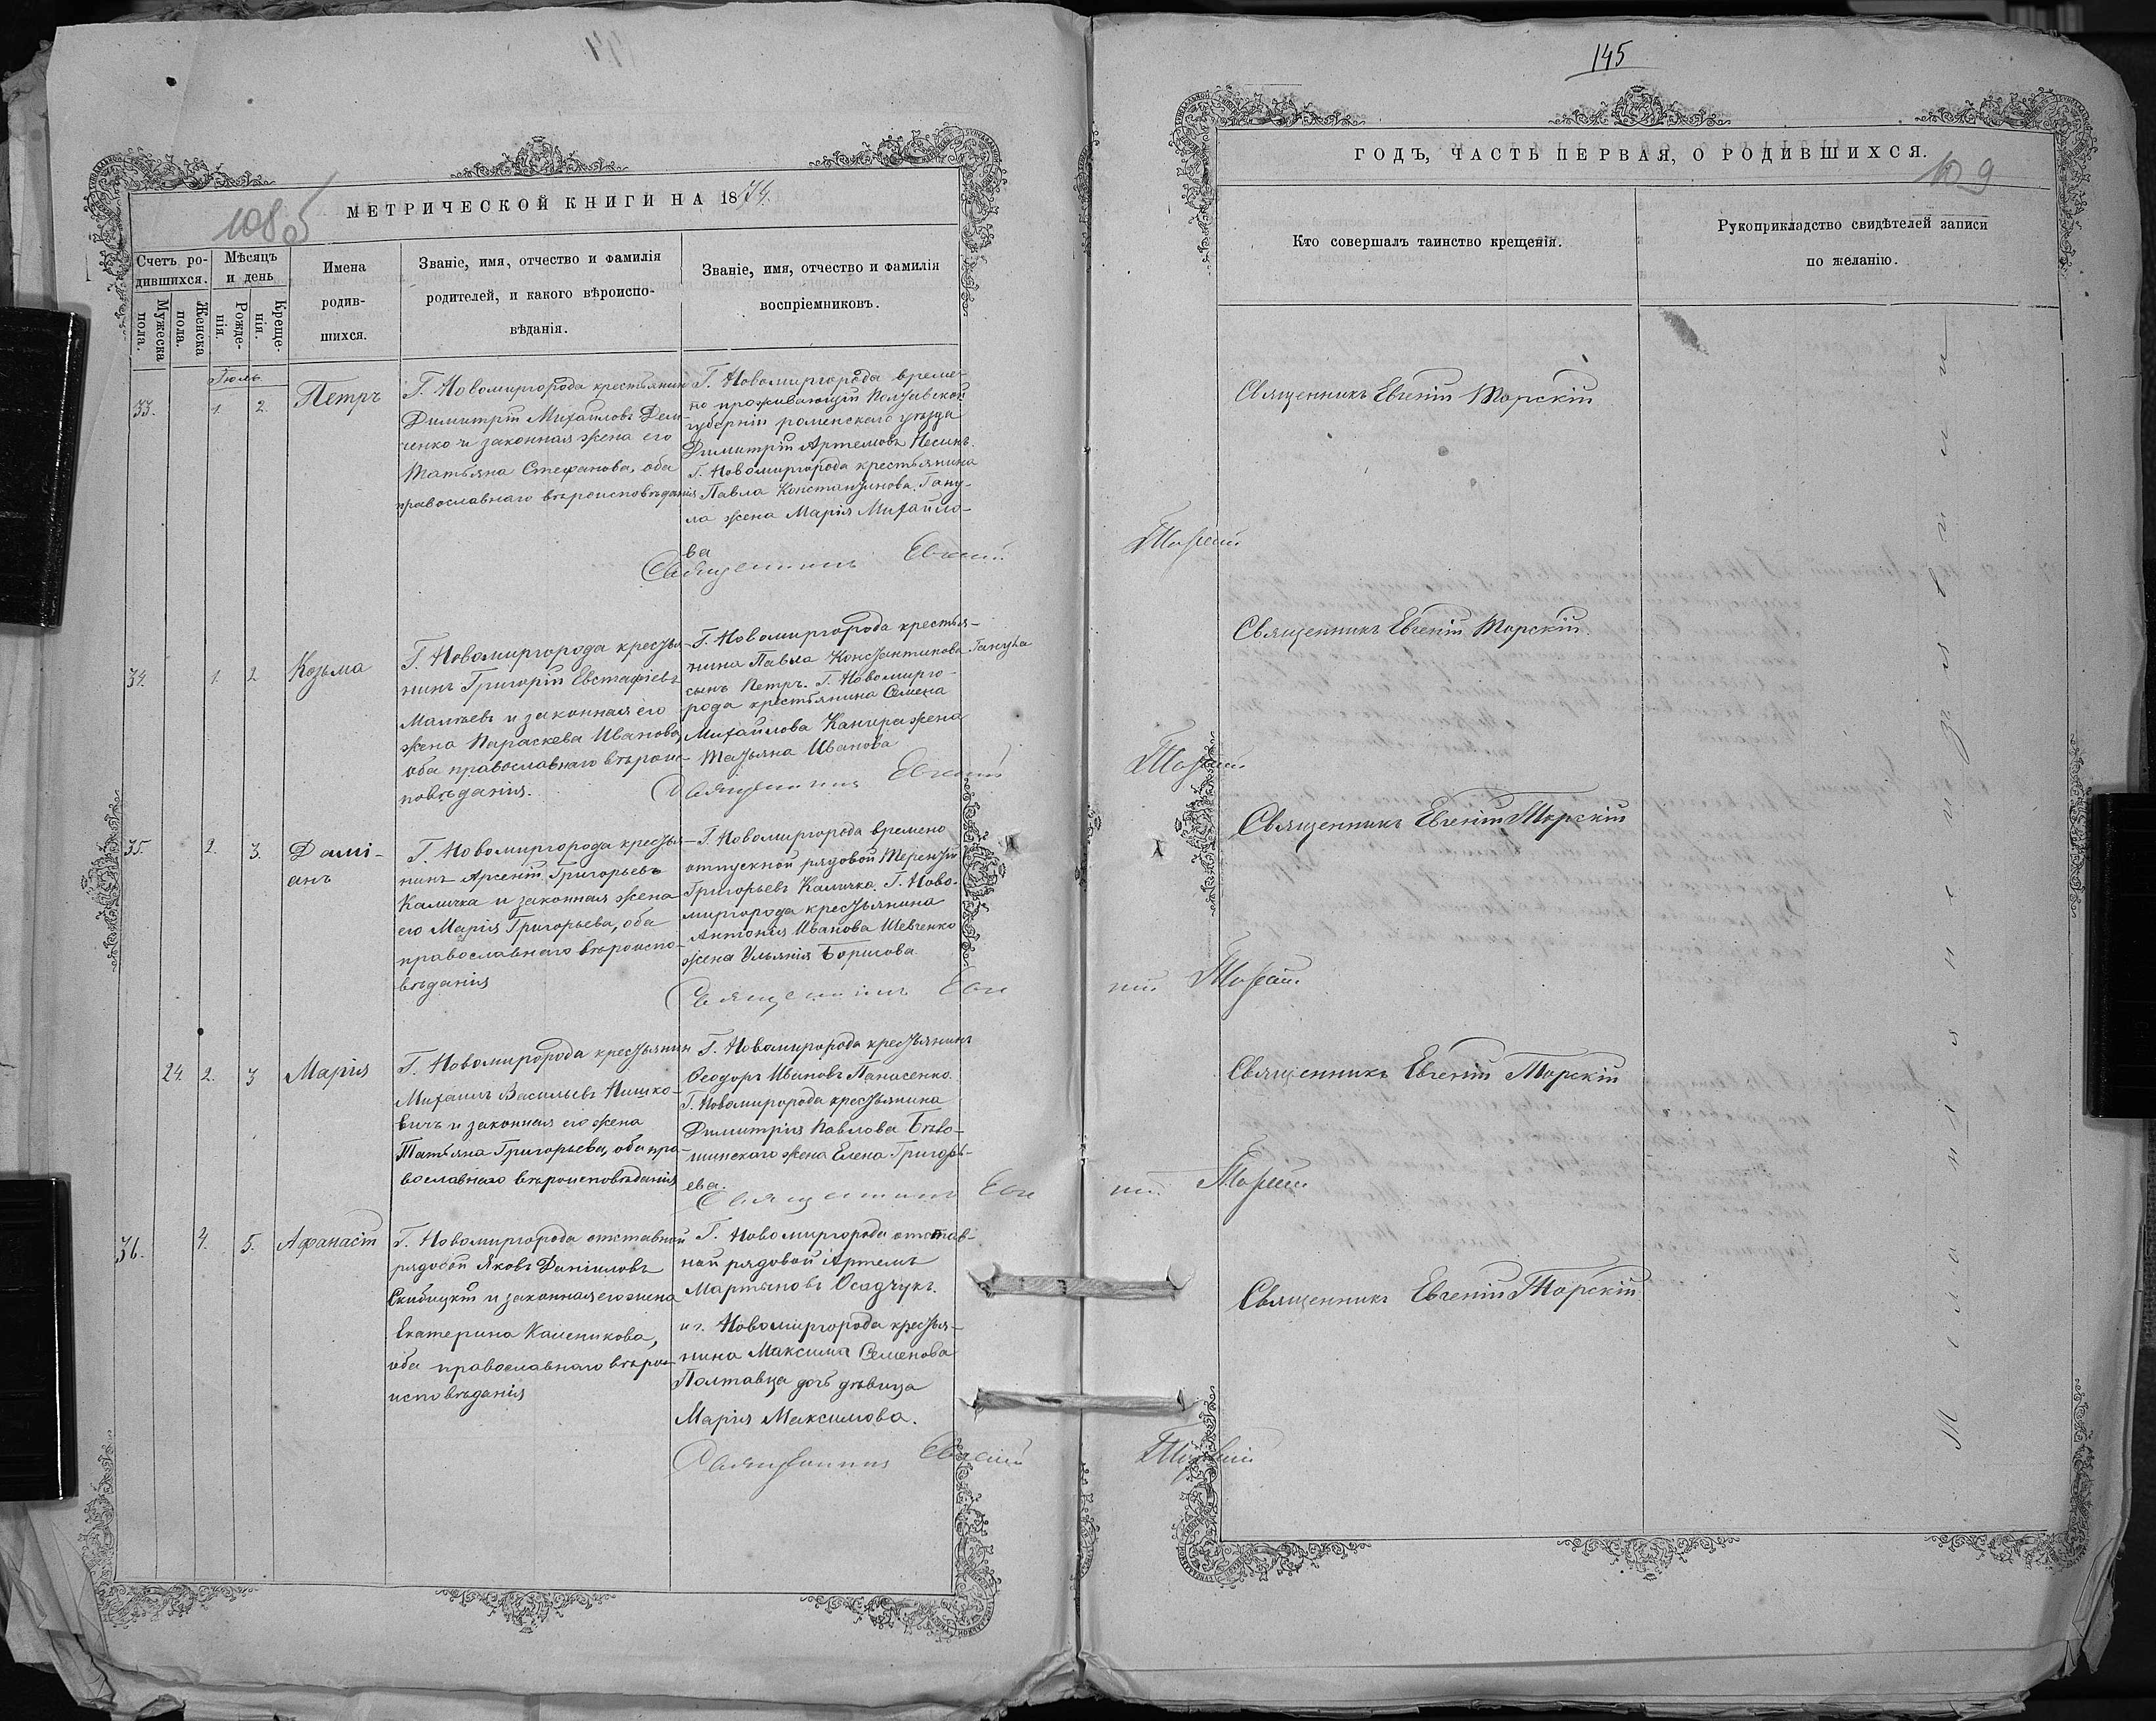 145
МЕТРИЧЕСКОЙ КНИГИ НА 1874.
Счетъ ро-
дившихся.
Мужеска
пола.
Женска
пола.
Мѣсяцъ
и день
Рожде-
нія.
Креще-
нія.
Имена
родив-
шихся.
Званіе, имя, отчество и фамилія
родителей, и какого вѣроиспо-
вѣданія.
Званіе, имя, отчество и фамилія
воспріемниковъ.
Іюль
33.
1.
2.
Петръ
Г. Новомиргорода крестьянинъ
Димитрій Михайловъ Дем-
ченко и законная жена его
Татьяна Стефанова, оба
православнаго вѣроисповѣданія
Г. Новомиргорода време-
но проживающій Полтавской
губерніи роменскаго уѣзда
Димитрій Артемовъ Несинъ.
Г. Новомиргорода крестьянина
Павла Константинова Гану-
ла жена Марія Михайло-
ва
Священникъ Евгеній Торскій
34.
1.
2
Козьма
Г. Новомиргорода крестья-
нинъ Григорій Евстафіевъ
Малѣевъ и законная его
жена Параскева Иванова,
оба православнаго вѣроис-
повѣданія.
Г. Новомиргорода крестья-
нина Павла Константинова Ганула
сынъ Петръ. Г. Новомирго-
рода крестьянина Семена
Михайлова жена
Татьяна Иванова
Священникъ Евгеній Торскій
35.
2.
3.
Дамі-
анъ
Г. Новомиргорода крестья-
нинъ Арсеній Григорьевъ
Каличка и законная жена
его Марія Григорьева, оба
православнаго вѣроиспо-
вѣданія
Г. Новомиргорода времено
отпускной рядовой Терентій
Григорьевъ Каличка. Г. Ново-
миргорода крестьянина
Антонія Иванова Шевченко
жена Ульянія Борисова.
Священникъ Евгеній Торскій
24.
2.
3
Марія
Г. Новомиргорода крестьянин
Михаилъ Васильевъ Пишко-
вичъ и законная его жена
Татьяна Григорьева, оба пра-
вославнаго вѣроисповѣданія
Г. Новомиргорода крестьянинъ
Ѳеодоръ Ивановъ Панасенко.
Г. Новомиргорода крестьянина
Димитрія Павлова Бѣло-
шинскаго жена Елена Григорь-
ева.
Священникъ Евгеній Торскій
36.
4.
5.
Афанасій
Г. Новомиргорода отставной
рядовой Яковъ Даніиловъ
Скибицкій и законная его жена
Екатерина Каленикова,
оба православнаго вѣрои-
исповѣданія
Г. Новомиргорода отстав-
ной рядовой Артемъ
Мартыновъ Осадчукъ.
и г. Новомиргорода крестья-
нина Максима Семенова
Полтавца дочь дѣвица
Марія Максимова.
Священникъ Евгеній Торскій
ГОДЪ, ЧАСТЬ ПЕРВАЯ, О РОДИВШИХСЯ.
109
Кто совершалъ таинство крещенія.
Рукоприкладство свидѣтелей записи
по желанію.
Священникъ Евгеній Торскій
Священникъ Евгеній Торскій.
Священникъ Евгеній Торскій
Священникъ Евгеній Торскій
Священникъ Евгеній Торскій.